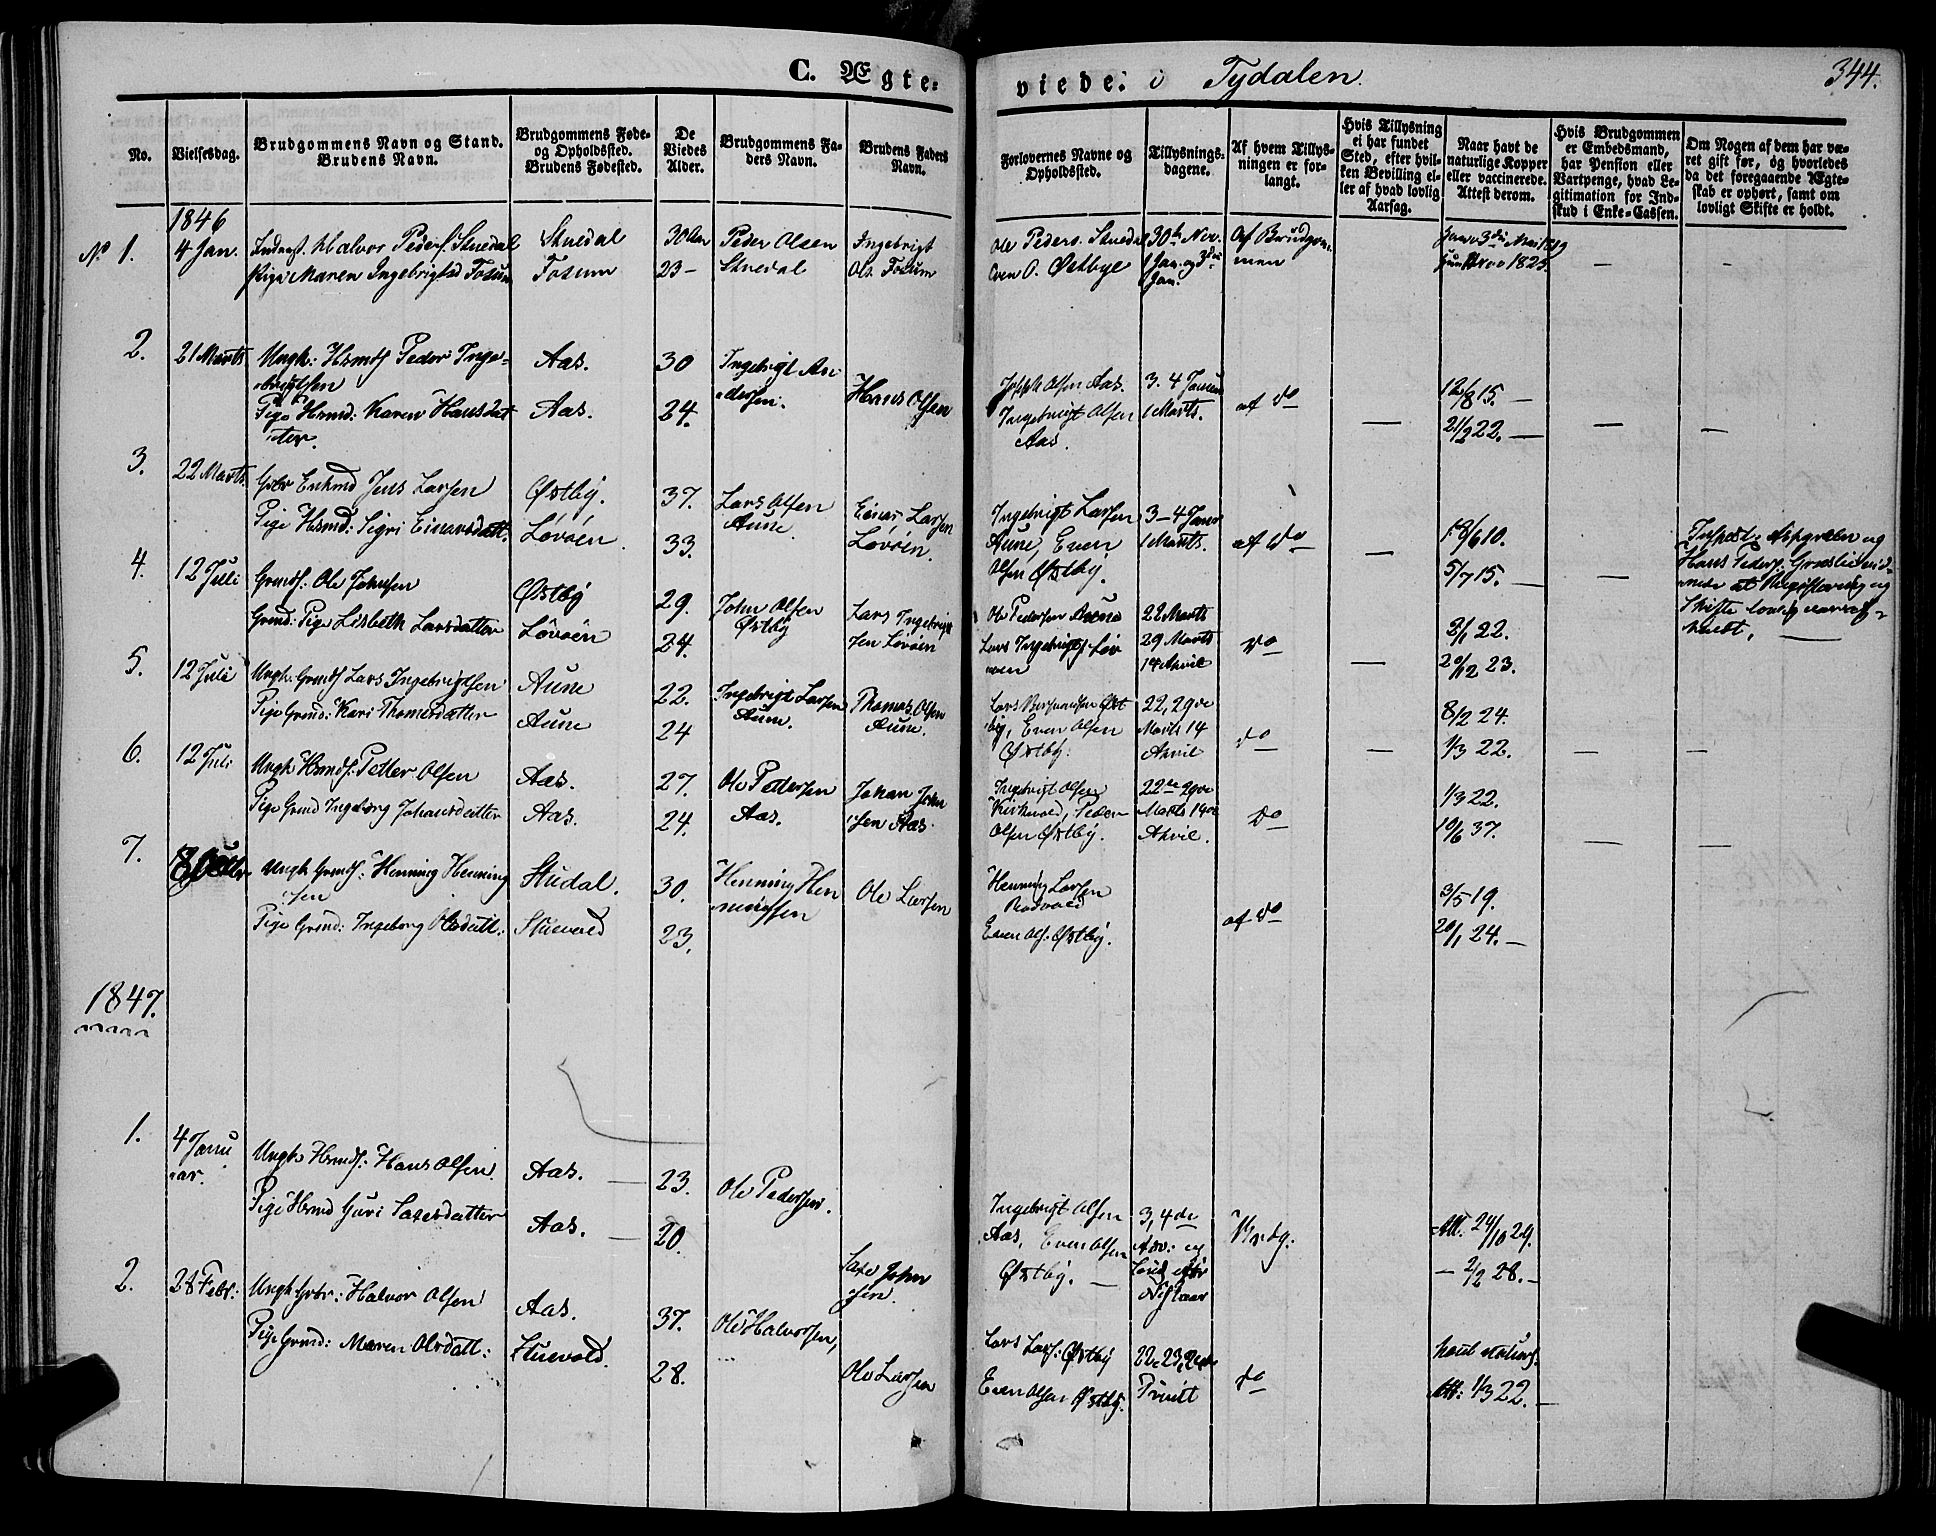 C. Ægte-
viede. i Tydalen.
344.
No.
Vielsesdag.
Brudgommens Navn og Stand.
Brudens Navn.
Brudgommens Føde-
og Opholdssted.
Brudens Fødested.
De
Viedes
Alder.
Brudgommens Fa-
ders Navn.
Brudens Faders
Navn.
Forlovernes Navne og
Opholdssted.
Tillysnings-
dagene.
Af hvem Tillys-
ningen er for-
langt.
Hvis Tillysning
ei har fundet
Sted, efter hvil-
ken Bevilling el-
ler af hvad lovlig
Aarsag.
Naar havt de
naturlige Kopper
eller vaccinerede.
Attest derom.
Hvis Brudgommen
er Embedsmand,
har Pension eller
Vartpenge, hvad Le-
gitimation for Ind-
skud i Enke-Cassen.
Om Nogen af dem har væ-
ret gift før, og hvorledes
da det foregaaende Ægte-
skab er ophørt, samt om
lovligt Skifte er holdt.
1846
No 1.
4 Jan.
Halvor Peders. Stuedal
Pige Maren Ingebrigtsd Fosum
Stuedal
Fosum
30 Aar
23 -
Peder Olsen
Stuedal
Ingebrigt
Ols. Fosum
Ole Peders. Stuedal
Even O. Østbye
30te Nov.
1 Jan. og 3die
Jan.
Af Brudgom-
men
3die Mai 1819
1825.
2.
21 Marts
Ungk: Hsmds Peder Inge-
brigtsen
Pige Hsmd: Karen Hansdat
ter.
Aas.
Aas.
30
24.
Ingebrigt An
dersen.
Hans Olsen
Joseph Olsen Aas.
Ingebrigt Olsen
Aas.
3. 4 Januar
1 Marts.
af do
12/8 15. —
21/2 22. —
3.
22 Marts.
Gbr Enkmd Jens Larsen
Pige Hsmd: Sigri Einarsdatt.
Østby.
Løvøen.
37.
33.
Lars Olsen
Aune.
Einar Larsen
Løvøen.
Ingebrigt Larsen
Aune, Even
Olsen Østby.
3-4 Januar
1 Marts.
af do
18/6 10.
5/7 15. —
Hans Peders. Græslie vid-
nede at Registrering og
Skifte lovlig var af-
holdt.
4.
12 Juli
Grmds. Ole Johnsen
Grmd: Pige Lisbeth Larsdatter
Østby
Løvøen
29.
24.
John Olsen
Østby
Lars Ingebrigt
sen Løvøen
Ole Pedersen Aune
Lars Ingebrigts. Løv
øen
22 Marts
29 Marts
14 April
do
2/1 22.
20/12 23.
5.
12 Juli
Ungk. Grmds Lars Ingebrigtsen
Pige Grmd: Kari Thomesdatter
Aune
Aune
22.
24
Ingebrigt Larsen
Aune.
Thomas Olsen
Aune.
Lars Bersvendsen Øst
by, Even Olsen
Østby.
22, 29de
Marts 14
April
do
8/2 24.
1/3 22.
6.
12 Juli
Ungk Hsmds. Petter Olsen
Pige Grmd Ingeborg Johansdatter
Aas.
Aas.
27.
24.
Ole Pedersen
Aas.
Johan John
sen Aas.
Ingebrigt Olsen
Kirkvold, Peder
Olsen Østby.
22de 29de
Marts 14de
April.
do
1/3 22.
10/6 37.
7.
Ungk Grmds: Henning Henning
sen
Pige Grmd: Ingeborg Olsdatt:
Studal.
Stuevold
30.
23.
Henning Hen
ningsen
Ole Larsen
Henning Larsen
Even Ols. Østby.
af do
3/5 19.
20/1 24. —
1847.
1.
4 Janu
ar.
Ungk Hsmds: Hans Olsen.
Pige Hsmd Guri Saxesdatter
Aas.
Aas.
23.
20.
Ole Pedersen.
Saxe John
sen.
Ingebrigt Olsen
Aas, Even Olsen
Østby. —
3, 4de
Adv: og
Nytaar
Brdg:
Att. 24/10 29.
— 2/2 28. —
2.
28 Febr:
Ungk Gbr: Halvor Olsen
Pige Grmd: Maren Olsdatt:
Aas.
Stuevold.
37.
28.
Ole Halvorsen,
Ole Larsen
Lars Lars: Østby
Even Olsen Østby.
22, 23, 24de
Trinitt
do
havt naturl.
Att: 1/3 22. —